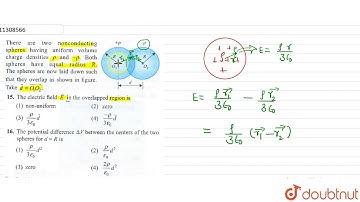 11308566
There are two nonconducting
spheres having uniform volume
charge densities ρ and −ρ. Both
spheres have equal radius R.
The spheres are now laid down such
that they overlap as shown in figure.
Take d = O₁O₂.
+ρ
−ρ
R
O₁
R
O₂
d
15. The electric field E in the overlapped region is
(1) non-uniform (2) zero
(3) ρ/3ε₀ d (4) −ρ/3ε₀ d
16. The potential difference ΔV between the centers of the two
spheres for d = R is
(1) ρ/3ε₀ d² (2) ρ/ε₀ d²
(3) zero (4) 2ρ/ε₀ d²
E = ρr/3ε₀
E = ρr₁/3ε₀ − ρr₂/3ε₀
= ρ/3ε₀ (r₁ − r₂)
doubtnut